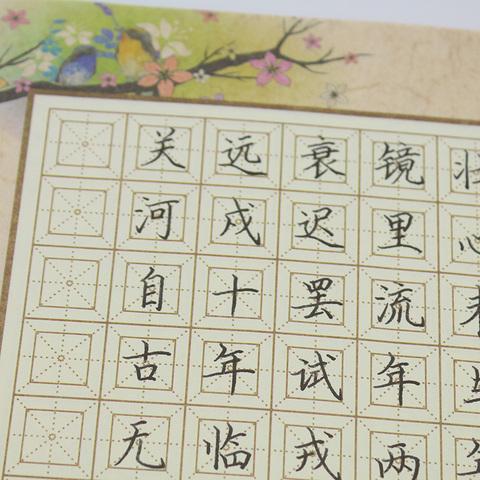 镜里流年两
衰迟罢试戎
远戍十年临
关河自古无